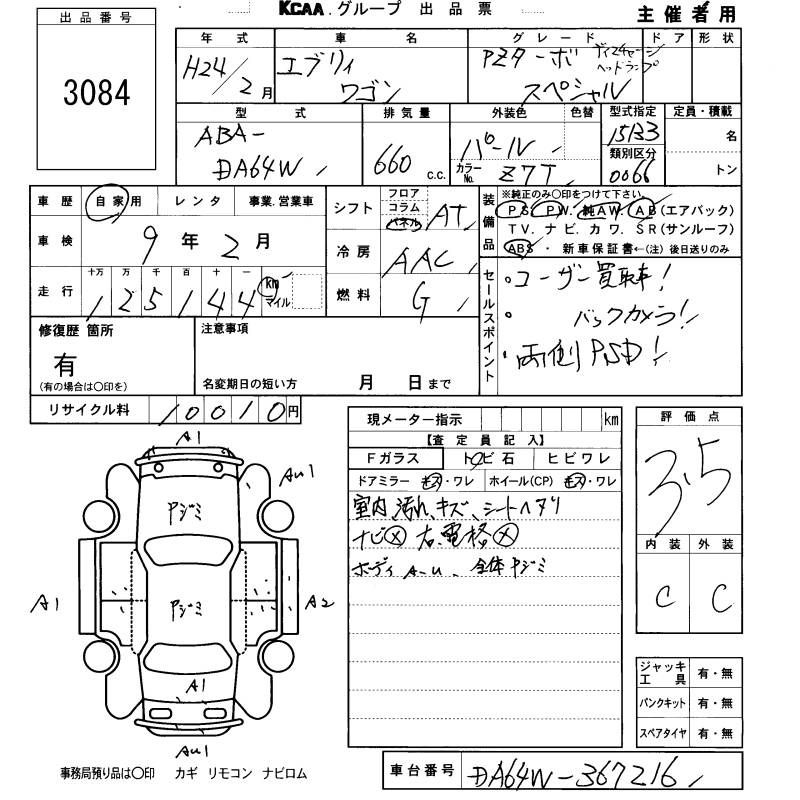 KCAA.グループ 出品票 主催者用
出品番号
3084
年式 車名 グレード ドア 形状
H24/2月 エブリィ ワゴン PZターボ スペシャル
ディスチャージ ヘッドランプ
型式 排気量 外装色 色替 型式指定 定員・積載
ABA-DA64W 660 c.c. パール 15133 名
カラーNo. Z7T 類別区分 0066 トン
車歴 自家用 レンタ 事業.営業車
シフト フロア コラム パネル AT
装備品 ※純正のみ〇印をつけて下さい
PS. PW. 純AW. AB(エアバック)
TV. ナビ. カワ. SR(サンルーフ)
ABS ・ 新車保証書←(注) 後日送りのみ
車検 9年2月
冷房 AAC
走行 十万 万 千 百 十 一
125144 km マイル
燃料 G
セールスポイント
・ユーザー買取車!
・バックカメラ!
・両側PSD!
修復歴 箇所 有
(有の場合は〇印を)
注意事項
名変期日の短い方 月 日まで
リサイクル料 10010円
現メーター指示 km
評価点
3.5
【査定員記入】
Fガラス トビ石 ヒビワレ
ドアミラー キズ・ワレ ホイール(CP) キズ・ワレ
室内、汚れ、キズ、シートヘタリ
ナビ✕ 右、電格✕
ボディ A-U、全体Pジミ
内装 外装
C C
A1
AU1
Pジミ
A1
Pジミ
A2
A1
AU1
ジャッキ 工具 有・無
パンクキット 有・無
スペアタイヤ 有・無
事務局預り品は〇印 カギ リモコン ナビロム
車台番号 DA64W-367216